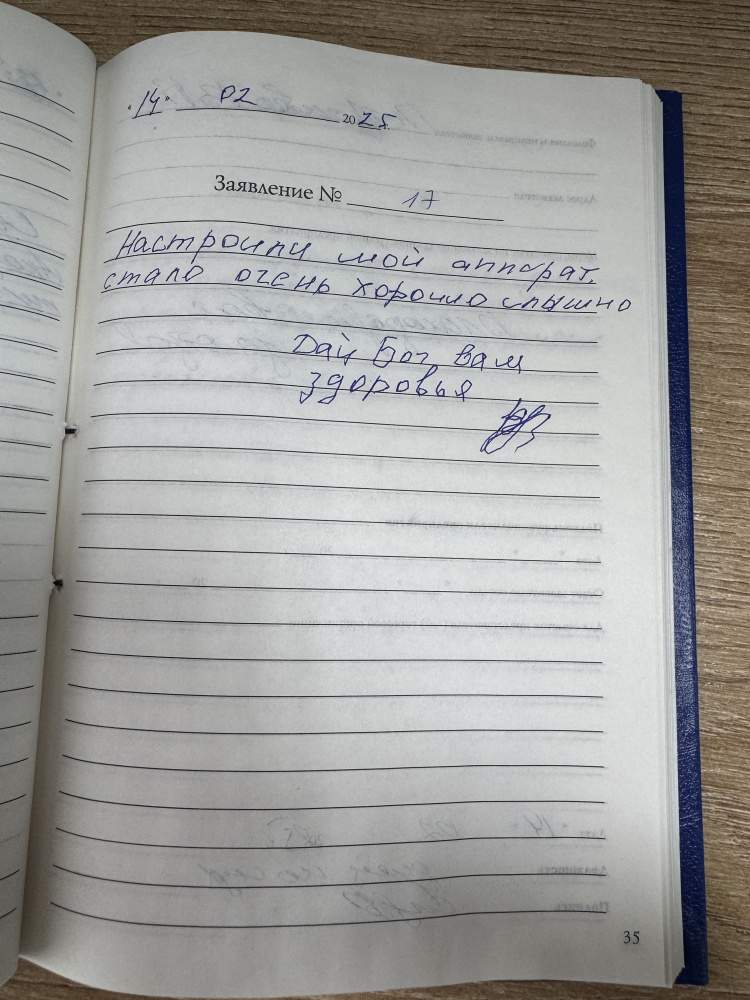 "14" 02 2025
Заявление № 17
Настроили мой аппарат.
стало очень хорошо слышно
Дай Бог Вам
здоровья
35